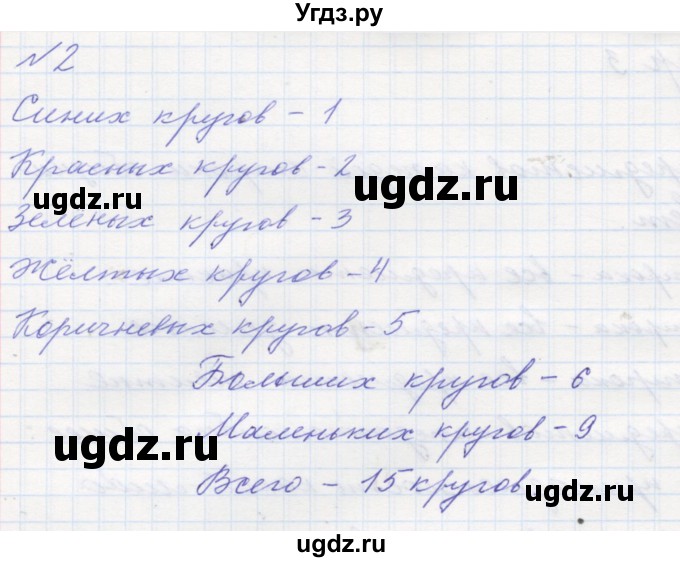 Угдз.ру
№2
Синих кругов - 1
Красных кругов - 2
ugdz.ru
ugdz.ru
Зелёных кругов - 3
Жёлтых кругов - 4
Коричневых кругов - 5
Больших кругов - 6
Маленьких кругов - 9
ugdz.ru
Всего - 15 кругов
ugdz.ru
ugdz.ru